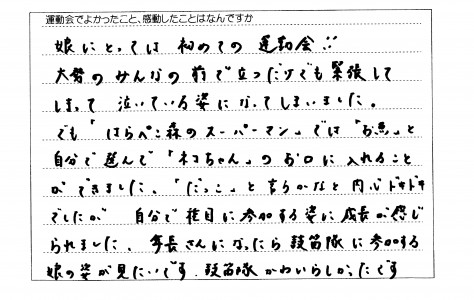 運動会でよかったこと、感動したことはなんですか
娘にとっては 初めての 運動会!!
大勢のみんなの前で立っただけでも緊張して
しまって 泣いている姿になってしまいました。
でも「はらぺこ森のスーパーマン」では「お魚」と
自分で選んで「ネコちゃん」のお口に入れること
ができました、「だっこ」と言うかなと内心ドキドキ
でしたが 自分で種目に参加する姿に成長が感じ
られました、年長さんになったら鼓笛隊に参加する
娘の姿が見たいです、鼓笛隊かわいらしかったです